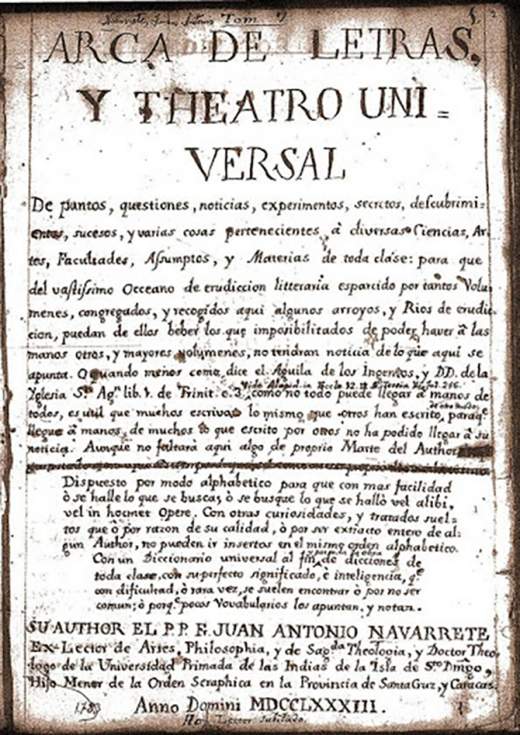 Navarrete, Juan Antonio Tom.
ARCA DE LETRAS,
Y THEATRO UNI=
VERSAL
De puntos, questiones, noticias, experimentos, secretos, descubrimi-
entos, sucesos, y varias cosas pertenecientes â diversas Ciencias, Ar-
tes, Facultades, Assumptos, y Materias de toda clase: para que
del vastissimo Occeano de erudiccion litteraria esparcido por tantos Volu-
menes, congregados, y recogidos aqui algunos arroyos, y Rios de erudic-
cion, puedan de ellos beber los que imposibilitados de poder haver â las
manos otros, y mayores volumenes, no tendran noticia de lo que aqui se
apunta. O quando menos como dice el Aguila de los Ingenios, y DD. de la
Iglesia Sn. Agn. lib. 1. de Trinit. c. 3. como no todo puede llegar â manos de
todos, es util que muchos escrivan lo mismo que otros han escrito, paraqe.
llegue â manos de muchos lo que escrito por otros no ha podido llegar â su
noticia. Aunque no faltarà aqui algo de proprio Marte del Author
Dispuesto por modo alphabetico para que con mas facilidad
ò se halle lo que se busca; ò se busque lo que se hallò vel alibi,
vel in hocmet Opere. Con otras curiosidades, y tratados suel-
tos que ò por razon de su calidad, ò por ser extracto entero de al-
gun Author, no pueden ir insertos en el mismo orden alphabetico.
Con un Diccionario universal al fin de dicciones de
toda clase, con su perfecto significado, è inteligencia, qe.
con dificultad, ò rara vez, se suelen encontrar ò por no ser
comun; ò porqe. pocos Vocabularios los apuntan, y notan.
SU AUTHOR EL P. P. F. JUAN ANTONIO NAVARRETE
Ex-Lector de Artes, Philosophia, y de Sagda. Theologia, y Doctor Theo-
logo de la Universidad Primada de las Indias de la Isla de Sto. Dmgo,
Hijo Menor de la Orden Seraphica en la Provincia de Santa Cruz, y Caracas.
1783 Anno Domini MDCCLXXXIII.
Hoy Lector Jubilado.